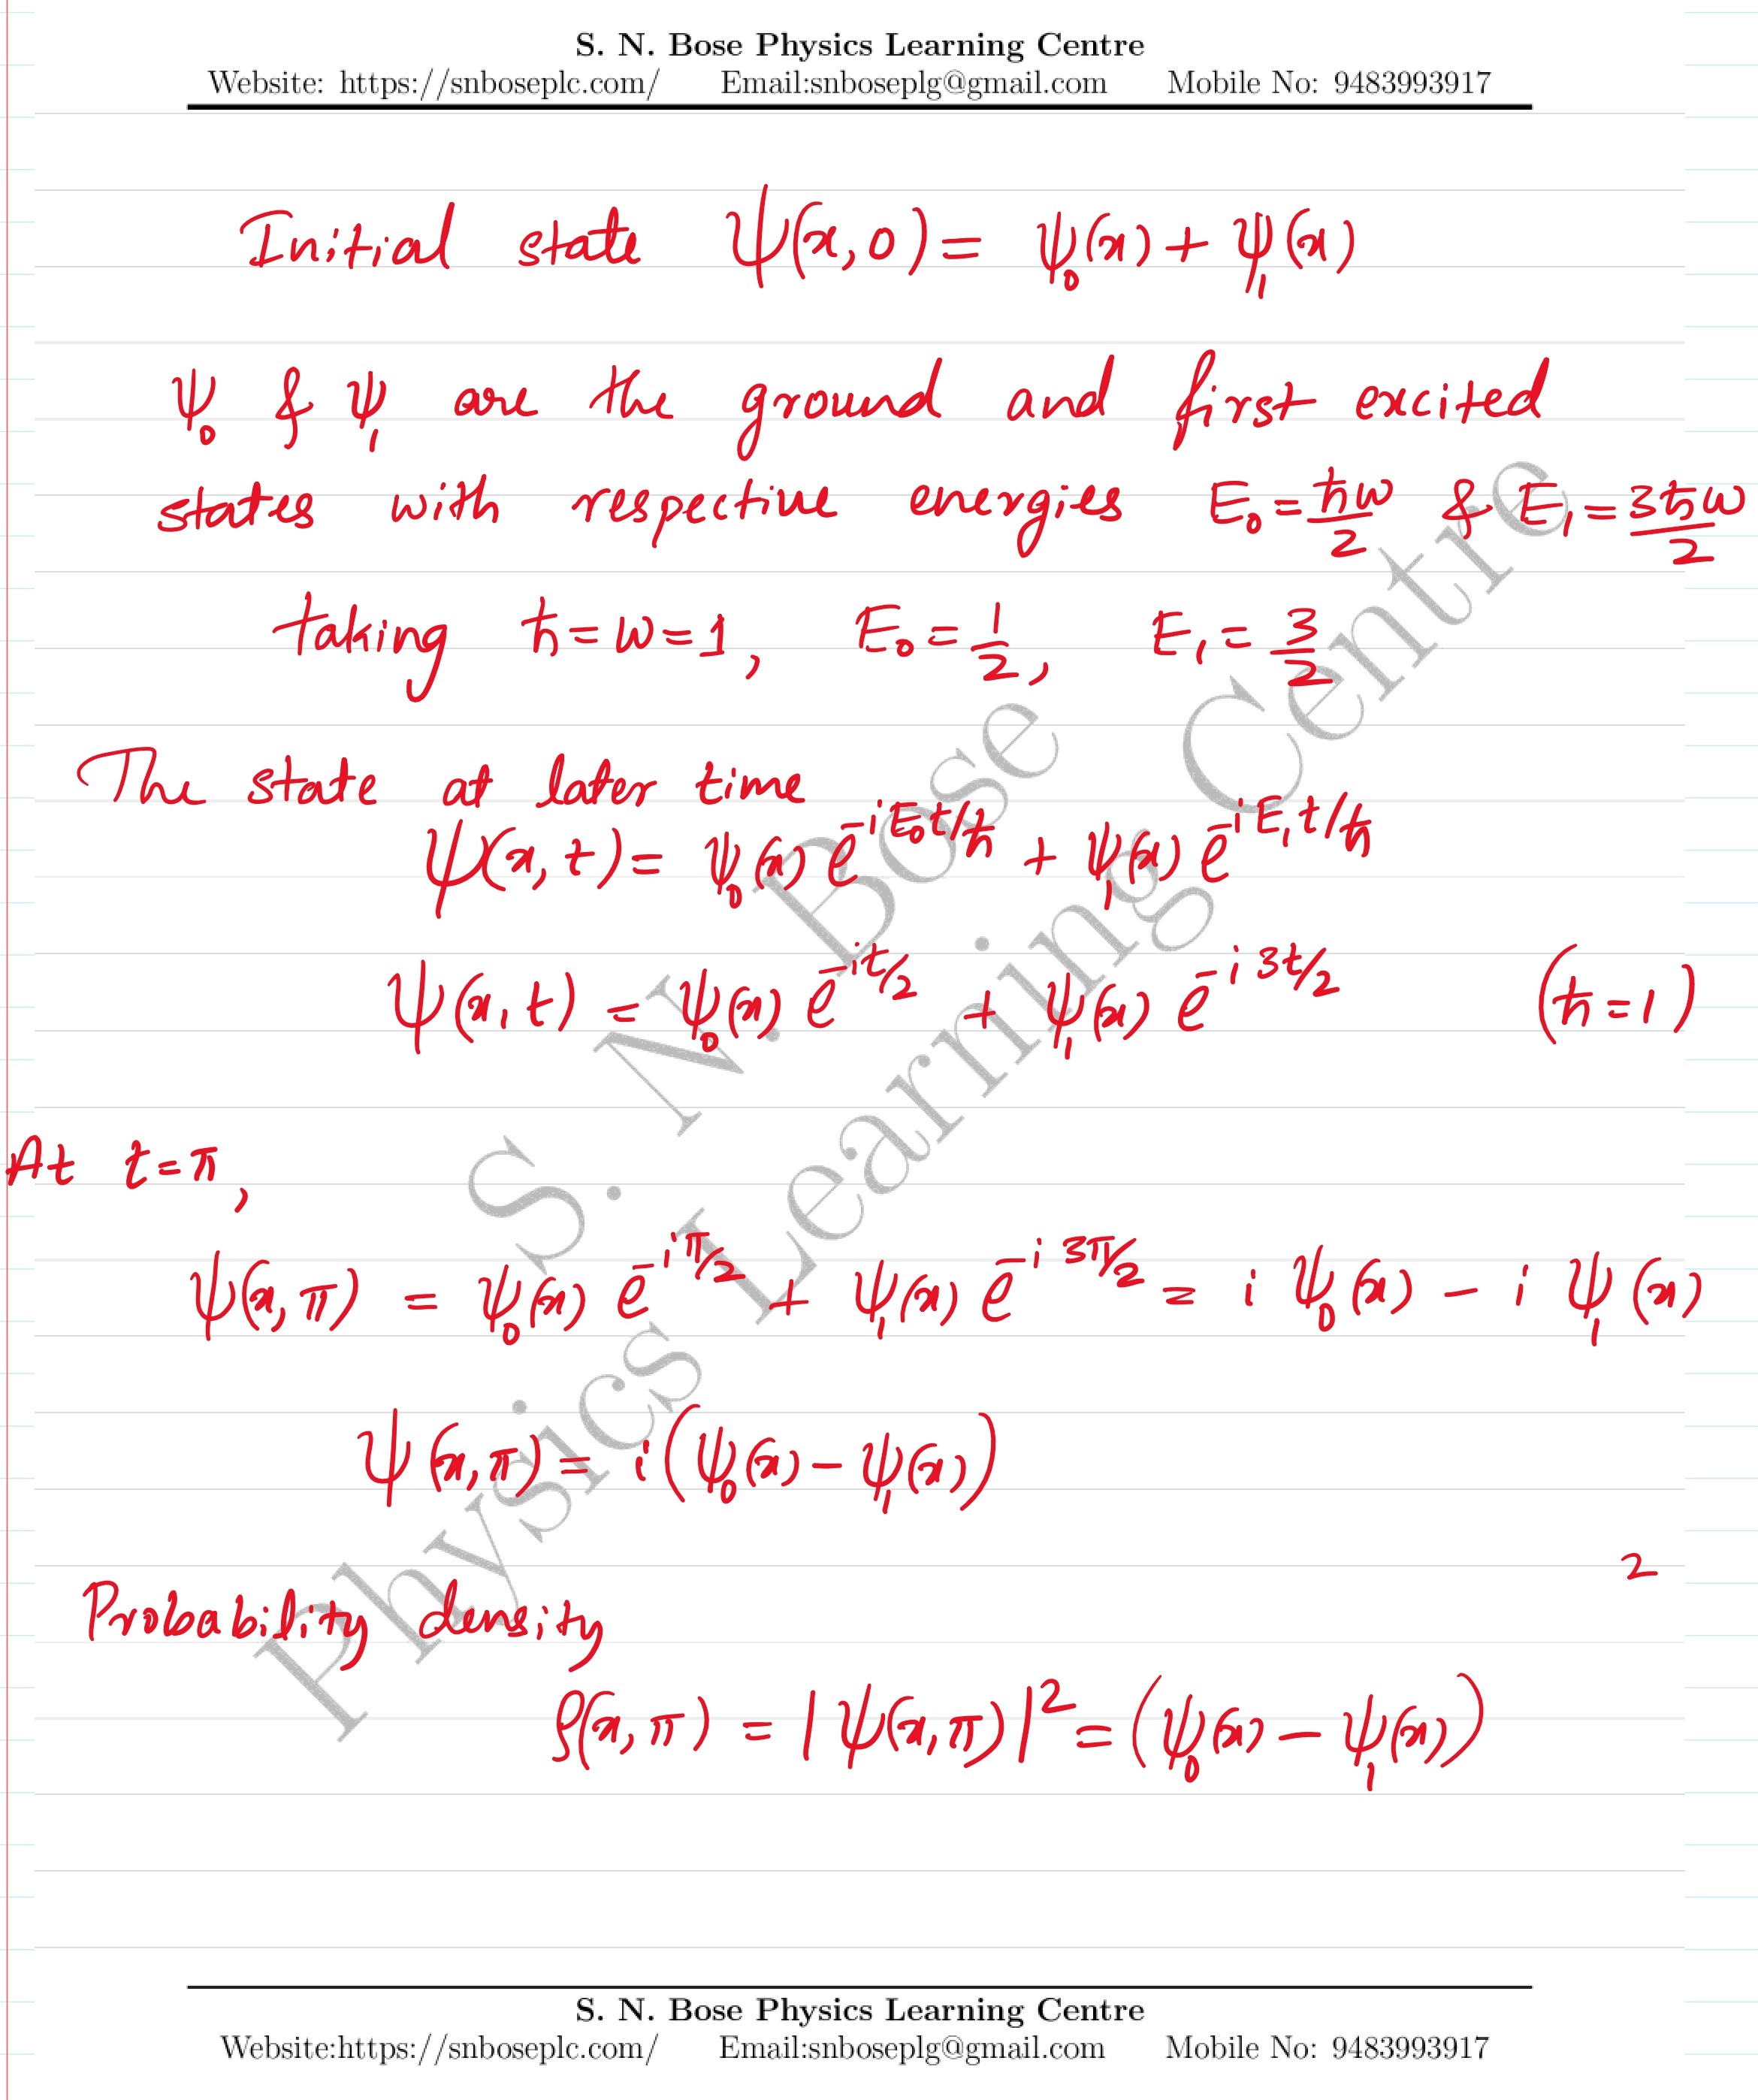 S. N. Bose Physics Learning Centre
Website: https://snboseplc.com/ Email:snboseplg@gmail.com Mobile No: 9483993917
Initial state ψ(x,0) = ψ₀(x) + ψ₁(x)
ψ₀ & ψ₁ are the ground and first excited
states with respective energies E₀ = ħω/2 & E₁ = 3ħω/2
taking ħ = ω = 1, E₀ = 1/2, E₁ = 3/2
The state at later time
ψ(x,t) = ψ₀(x) e^{-iE₀t/ħ} + ψ₁(x) e^{-iE₁t/ħ}
ψ(x,t) = ψ₀(x) e^{-it/2} + ψ₁(x) e^{-i3t/2} (ħ=1)
At t=π,
ψ(x,π) = ψ₀(x) e^{-iπ/2} + ψ₁(x) e^{-i3π/2} = i ψ₀(x) - i ψ₁(x)
ψ(x,π) = i(ψ₀(x) - ψ₁(x))
2
Probability density
ρ(x,π) = |ψ(x,π)|² = (ψ₀(x) - ψ₁(x))
S. N. Bose
Physics Learning Centre
S. N. Bose Physics Learning Centre
Website:https://snboseplc.com/ Email:snboseplg@gmail.com Mobile No: 9483993917